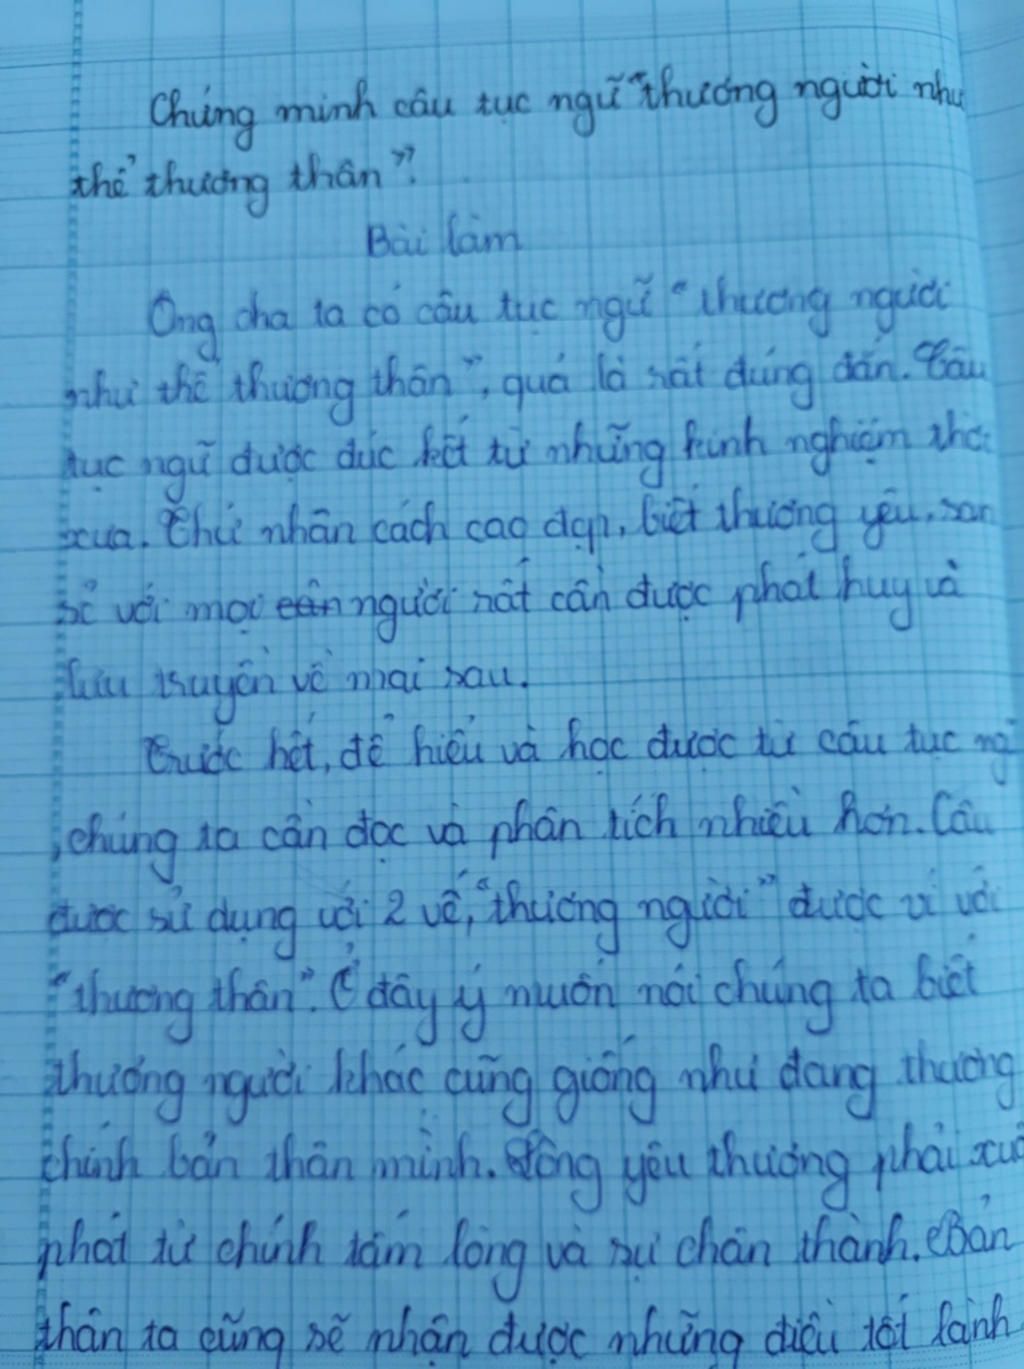 Chứng minh câu tục ngữ "thương người như
thể thương thân".
Bài làm
Ông cha ta có câu tục ngữ "thương người
như thể thương thân", quả là rất đúng đắn. Câu
tục ngữ được đúc kết từ những kinh nghiệm thời
xưa. Thứ nhân cách cao đẹp, biết thương yêu, san
sẻ với mọi người rất cần được phát huy và
lưu truyền về mai sau.
Trước hết, để hiểu và học được từ câu tục ng
, chúng ta cần đọc và phân tích nhiều hơn. Câu
được sử dụng với 2 vế, "thương người" được ví với
"thương thân". Ở đây ý muốn nói chúng ta biết
thương người khác cũng giống như đang thương
chính bản thân mình. Lòng yêu thương phải xuấ
phát từ chính tấm lòng và sự chân thành. Bản
thân ta cũng sẽ nhận được những điều tốt lành